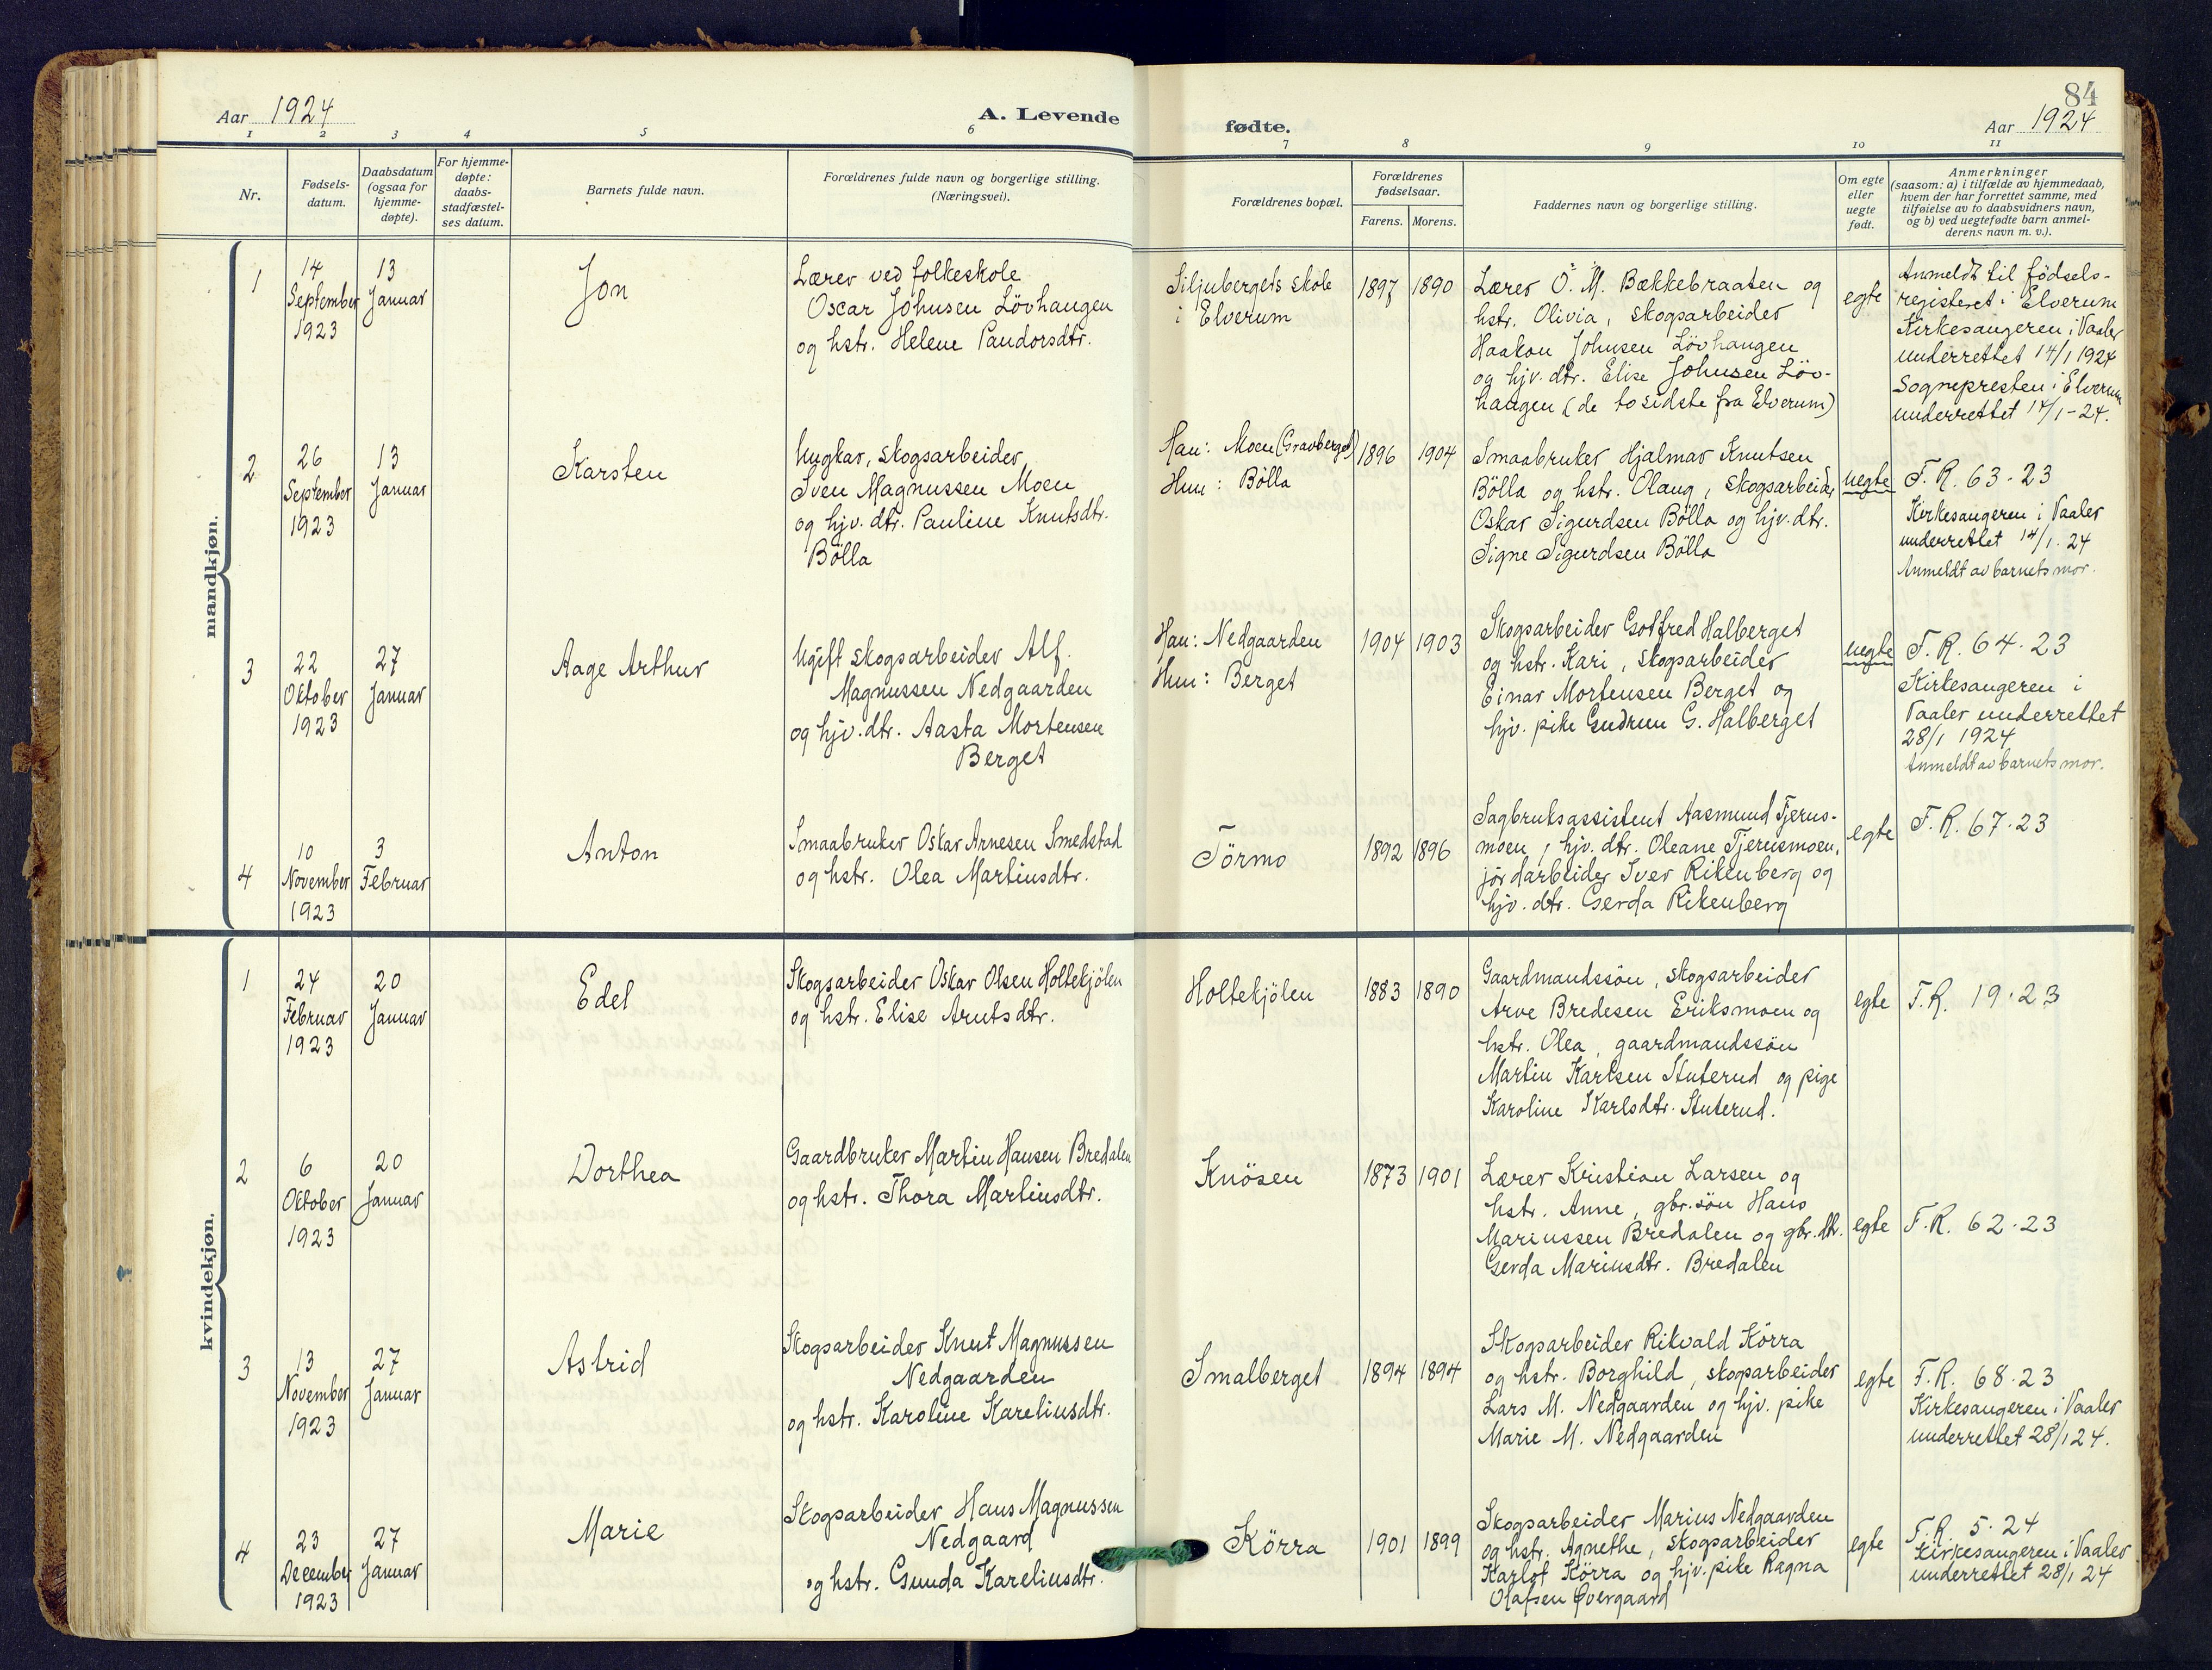 84
Aar 1924
A. Levende
fødte.
Aar 1924
1 2 3 4 5 6 7 8 9 10 11
Nr.
Fødsels-
datum.
Daabsdatum
(ogsaa for
hjemme-
døpte).
For hjemme-
døpte:
daabs-
stadfæstel-
ses datum.
Barnets fulde navn.
Forældrenes fulde navn og borgerlige stilling.
(Næringsvei).
Forældrenes bopæl.
Forældrenes
fødselsaar.
Farens. Morens.
Faddernes navn og borgerlige stilling.
Om egte
eller
uegte
født.
Anmerkninger
(saasom: a) i tilfælde av hjemmedaab,
hvem der har forrettet samme, med
tilføielse av to daabsvidners navn,
og b) ved uegtefødte barn anmel-
derens navn m. v.).
mandkjøn.
1
14
September
1923
13
Januar
Jon
Lærer ved folkeskole
Oscar Johnsen Lövhaugen
og hstr. Helene Pandorsdtr.
Siljubergets skole
i Elverum
1897
1890
Lærer O. M. Bækkebraaten og
hstr. Olivia, skogsarbeider
Haakon Johnsen Lövhaugen
og hjv. dtr. Elise Johnsen Löv-
haugen (de to sidste fra Elverum)
egte
Anmeldt til fødsels-
registeret i Elverum
Kirkesangeren i Vaaler
underrettet 14/1 1924
Sognepresten i Elverum
underrettet 14/1-24.
2
26
September
1923
13
Januar
Karsten
Ungkar, skogsarbeider
Sven Magnussen Moen
og hjv. dtr. Pauline Knutsdtr.
Bölla
Han: Moen (Gravberget)
Hun: Bölla
1896
1904
Smaabruker Hjalmar Knutsen
Bölla og hstr. Olaug, skogsarbeider
Oskar Sigurdsen Bölla og hjv. dtr.
Signe Sigurdsen Bölla
uegte
F. R. 63-23
Kirkesangeren i Vaaler
underrettet 14/1. 24
Anmeldt av barnets mor.
3
22
Oktober
1923
27
Januar
Aage Arthur
Ugift skogsarbeider Alf.
Magnussen Nedgaarden
og hjv. dtr. Aasta Mortensen
Berget
Han: Nedgaarden
Hun: Berget
1904
1903
Skogsarbeider Gotfred Halberget
og hstr. Kari, skogsarbeider
Einar Mortensen Berget og
hjv. pike Gudrun G. Halberget
uegte
F. R. 64-23
Kirkesangeren i
Vaaler underrettet
28/1 1924
Anmeldt av barnets mor.
4
10
November
1923
3
Februar
Anton
Smaabruker Oskar Arnesen Smedstad
og hstr. Olea Martinsdtr.
Törmo
1892
1896
Sagbruksassistent Aasmund Tjerns-
moen, hjv. dtr. Oleane Tjernsmoen,
jordarbeider Iver Rikenberg og
hjv. dtr. Gerda Rikenberg
egte
F. R. 67-23
kvindekjøn.
1
24
Februar
1923
20
Januar
Edel
Skogsarbeider Oskar Olsen Holtekjölen
og hstr. Elise Arntsdtr.
Holtekjölen
1883
1890
Gaardmandssön, skogsarbeider
Arve Bredesen Eriksmoen og
hstr. Olea, gaardmandssön
Martin Karlsen Stuterud og pige
Karoline Karlsdtr. Stuterud.
egte
F.R. 19-23
2
6
Oktober
1923
20
Januar
Dorthea
Gaardbruker Martin Hansen Bredalen
og hstr. Thora Martinsdtr.
Knösen
1873
1901
Lærer Kristian Larsen og
hstr. Anne, gbr. sön Hans
Mariussen Bredalen og gbr. dtr.
Gerda Mariusdtr. Bredalen
egte
F. R. 62-23
3
13
November
1923
27
Januar
Astrid
Skogsarbeider Knut Magnussen
Nedgaarden
og hstr. Karoline Kareliusdtr.
Smalberget
1894
1894
Skogsarbeider Rikvald Körra
og hstr. Borghild, skogsarbeider
Lars M. Nedgaarden og hjv. pike
Marie M. Nedgaarden
egte
F. R. 68-23
Kirkesangeren i Vaaler
underrettet 28/1 24.
4
23
December
1923
27
Januar
Marie
Skogsarbeider Hans Magnussen
Nedgaard
og hstr. Gunda Kareliusdtr.
Körra
1901
1899
Skogsarbeider Marius Nedgaarden
og hstr. Agnethe, skogsarbeider
Karlot Körra og hjv. pike Ragna
Olafsen Øvergaard
egte
F.R. 5-24
Kirkesangeren i Vaaler
underrettet 28/1 24